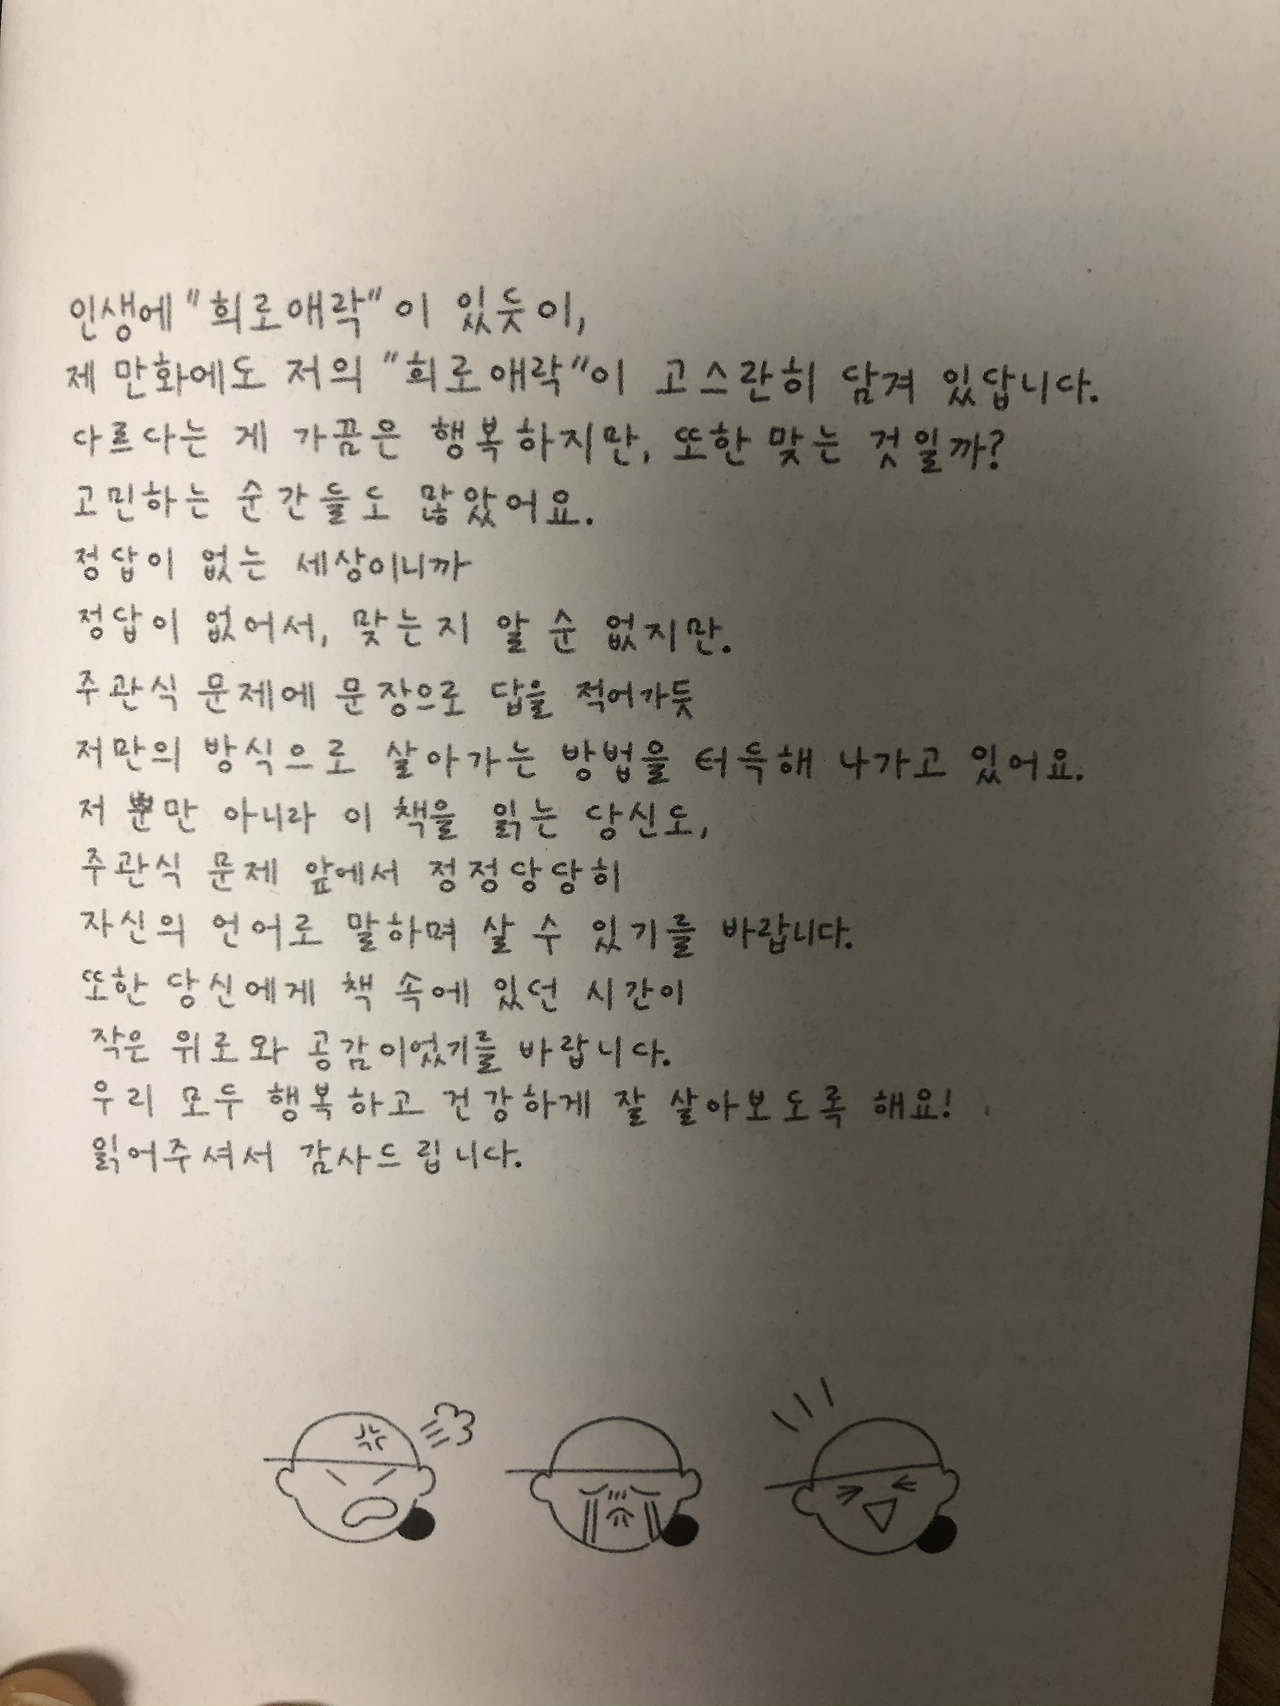 인생에 "희로애락"이 있듯이,
제 만화에도 저의 "희로애락"이 고스란히 담겨 있답니다.
다르다는 게 가끔은 행복하지만, 또한 맞는 것일까?
고민하는 순간들도 많았어요.
정답이 없는 세상이니까
정답이 없어서, 맞는지 알 순 없지만.
주관식 문제에 문장으로 답을 적어가듯
저만의 방식으로 살아가는 방법을 터득해 나가고 있어요.
저 뿐만 아니라 이 책을 읽는 당신도,
주관식 문제 앞에서 정정당당히
자신의 언어로 말하며 살 수 있기를 바랍니다.
또한 당신에게 책 속에 있던 시간이
작은 위로와 공감이었기를 바랍니다.
우리 모두 행복하고 건강하게 잘 살아보도록 해요!
읽어주셔서 감사드립니다.